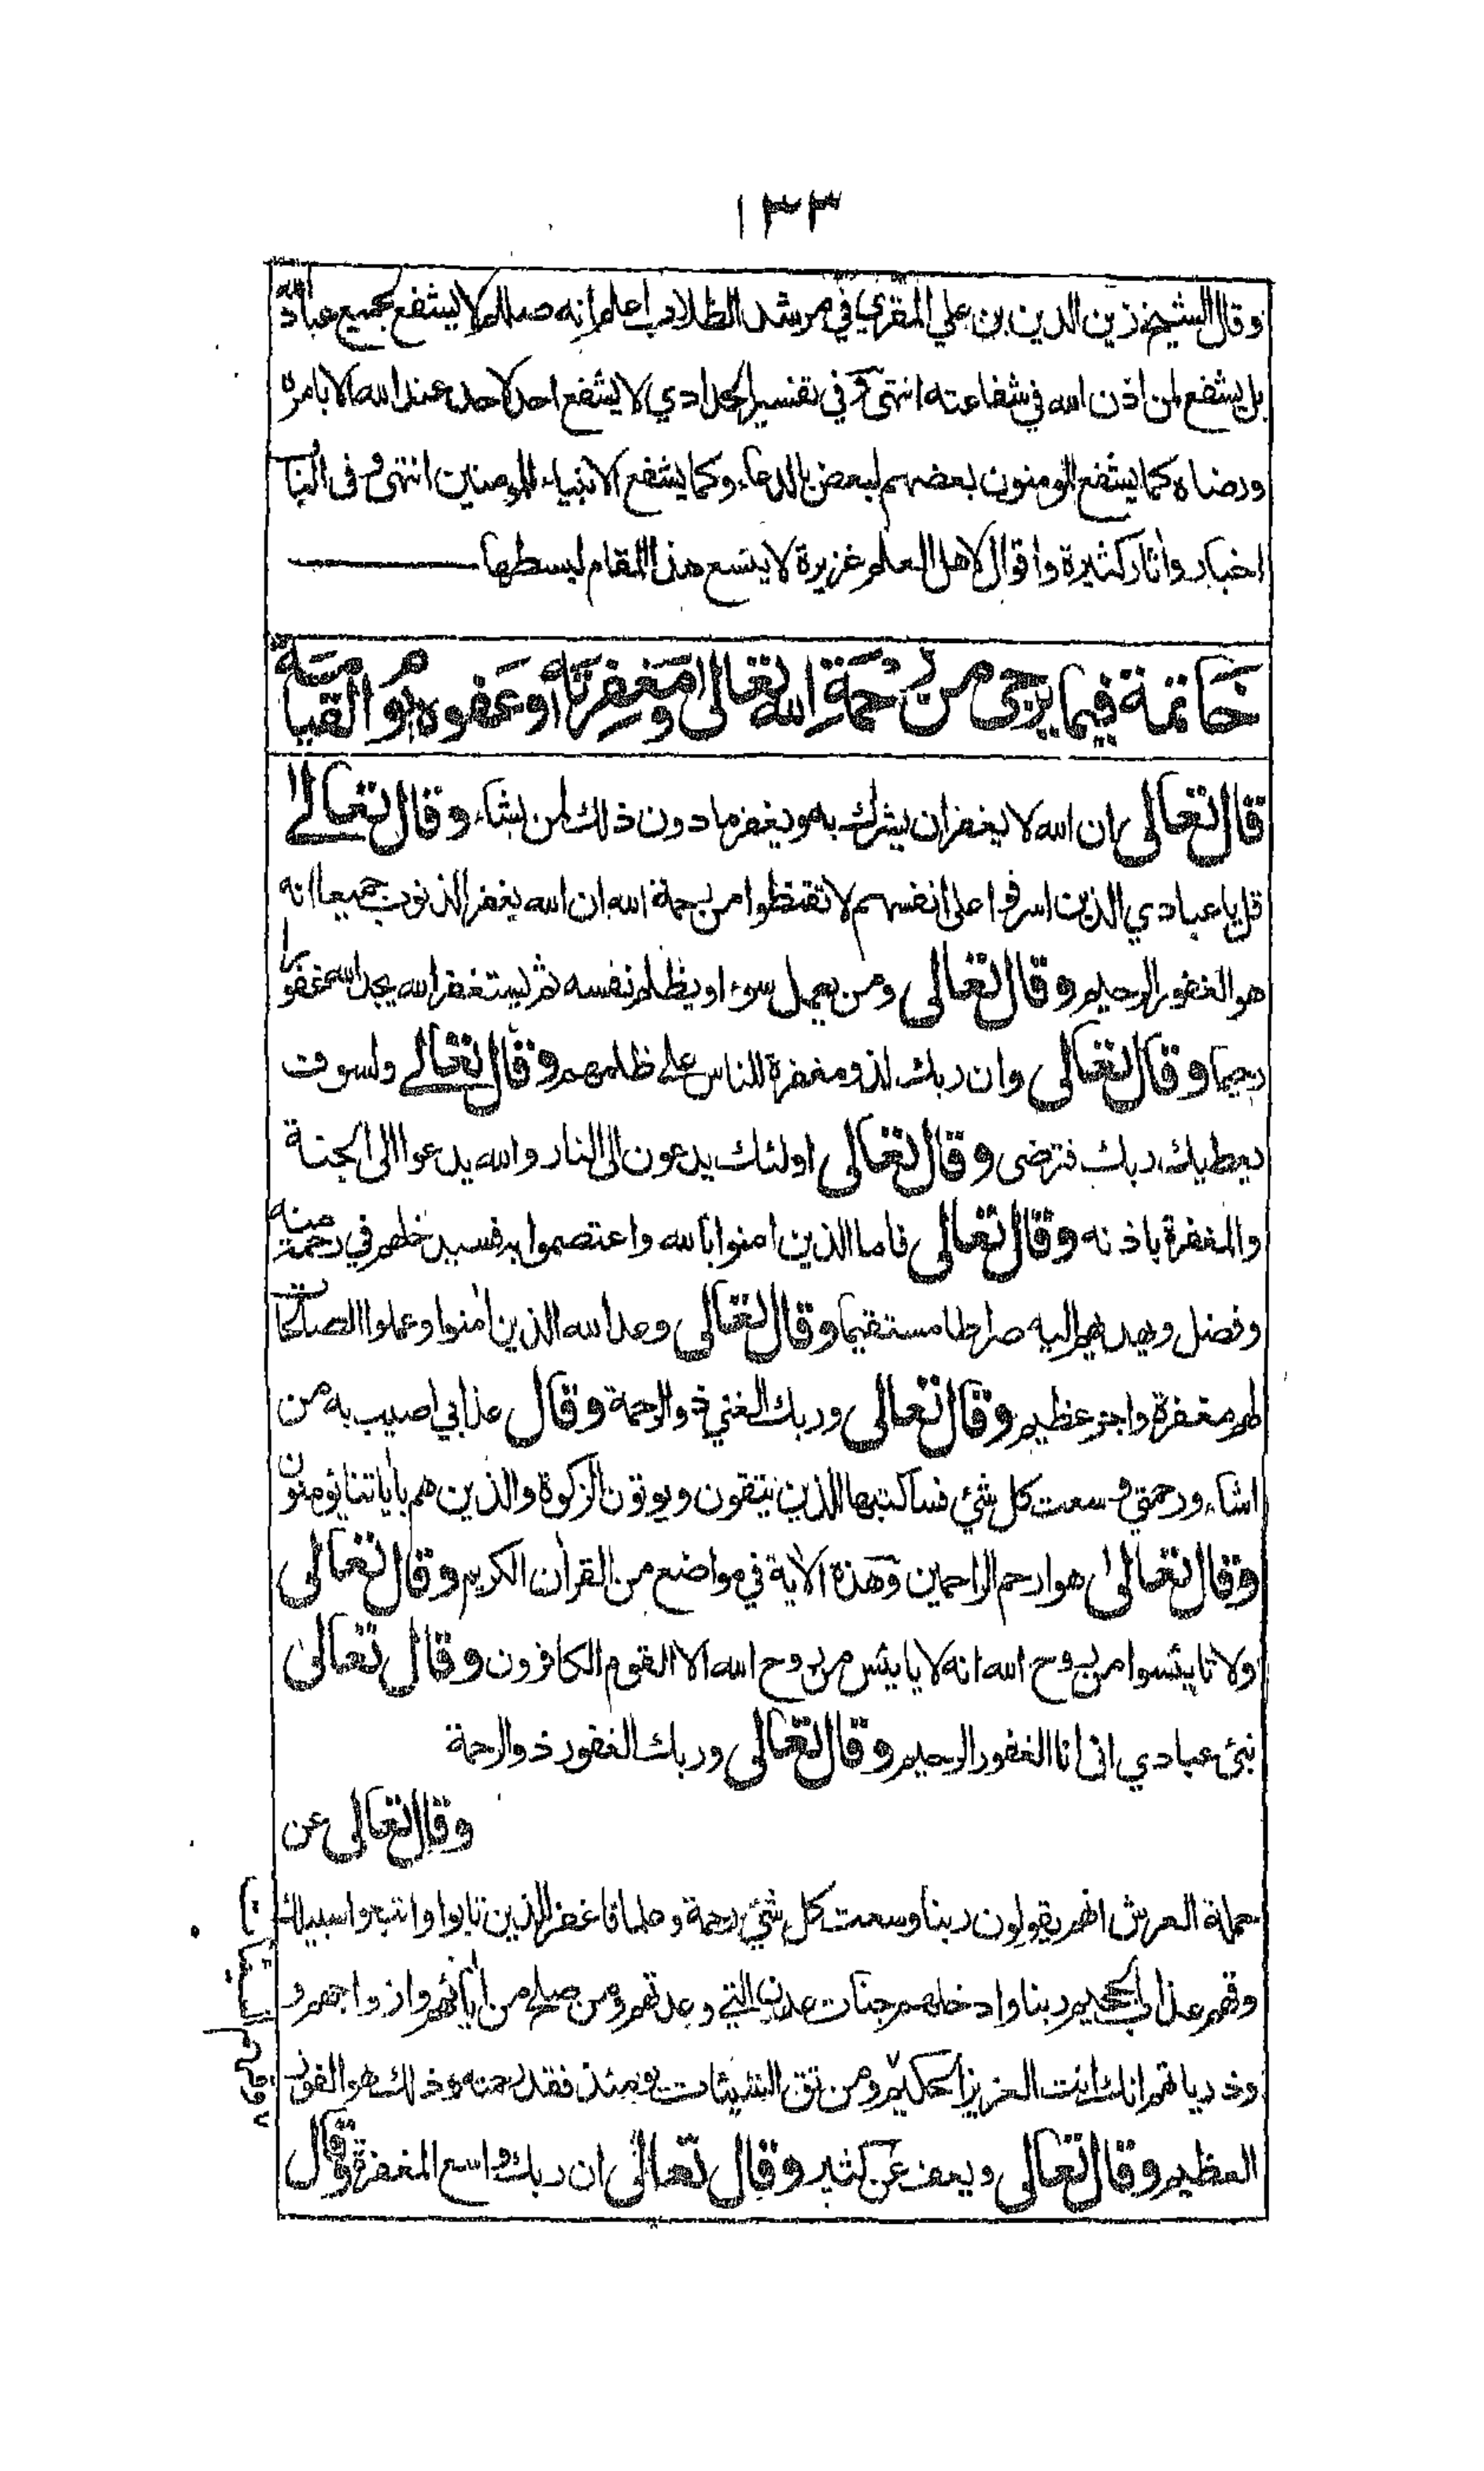 ١٣٣
وقال الشيخ زين الدين بن علي المقري في مرشد الطلاب اعلم انه صللم لا يشفع بجميع عباد الله
بل يشفع لمن اذن الله في شفاعته انتهى وفي تفسير الحدادي لا يشفع احد لاحد عند الله الا بامره
ورضاه كما يشفع المومنون بعضهم لبعض بالدعاء وكما يشفع الانبياء للمومنين انتهى وفى الباب
اخبار واثار كثيرة واقوال لاهل العلم غزيرة لا يتسع هذا المقام لبسطها
خاتمة فيما يرجى من رحمة الله تعالى ومغفرته أو عفوه يوم القيامة
قال تعالى ان الله لا يغفر ان يشرك به ويغفر ما دون ذلك لمن يشاء وقال تعالى
قل يا عبادي الذين اسرفوا على انفسهم لا تقنطوا من رحمة الله ان الله يغفر الذنوب جميعا انه
هو الغفور الرحيم وقال تعالى ومن يعمل سوء او يظلم نفسه ثم يستغفر الله يجد الله غفورا
رحيما وقال تعالى وان ربك لذو مغفرة للناس على ظلمهم وقال تعالى ولسوف
يعطيك ربك فترضى وقال تعالى اولئك يدعون الى النار والله يدعوا الى الجنة
والمغفرة باذنه وقال تعالى فاما الذين امنوا بالله واعتصموا به فسيدخلهم في رحمة منه
وفضل ويهديهم اليه صراطا مستقيما وقال تعالى وعد الله الذين أمنوا وعملوا الصالحات
لهم مغفرة واجر عظيم وقال تعالى وربك الغني ذو الرحمة وقال عذابي اصيب به من
اشاء ورحمتي وسعت كل شئ فساكتبها للذين يتقون ويوتون الزكوة والذين هم بأياتنا يؤمنون
وقال تعالى هو ارحم الراحمين وهذه الأية في مواضع من القرأن الكريم وقال تعالى
ولا تايئسوا من روح الله انه لا يايئس من روح الله الا القوم الكافرون وقال تعالى
نبئ عبادي انى انا الغفور الرحيم وقال تعالى وربك الغفور ذو الرحمة
وقال تعالى عن
حملة العرش انهم يقولون ربنا وسعت كل شئ رحمة وعلما فاغفر للذين تابوا واتبعوا سبيلك
وقهم عذاب الجحيم ربنا وادخلهم جنات عدن التي وعدتهم ومن صلح من أبائهم وازواجهم و
وذرياتهم انك انت العزيز الحكيم ومن تق السيئات يومئذ فقد رحمته وذلك هو الفوز
العظيم وقال تعالى ويعف عن كثير وقال تعالى ان ربك واسع المغفرة وقال